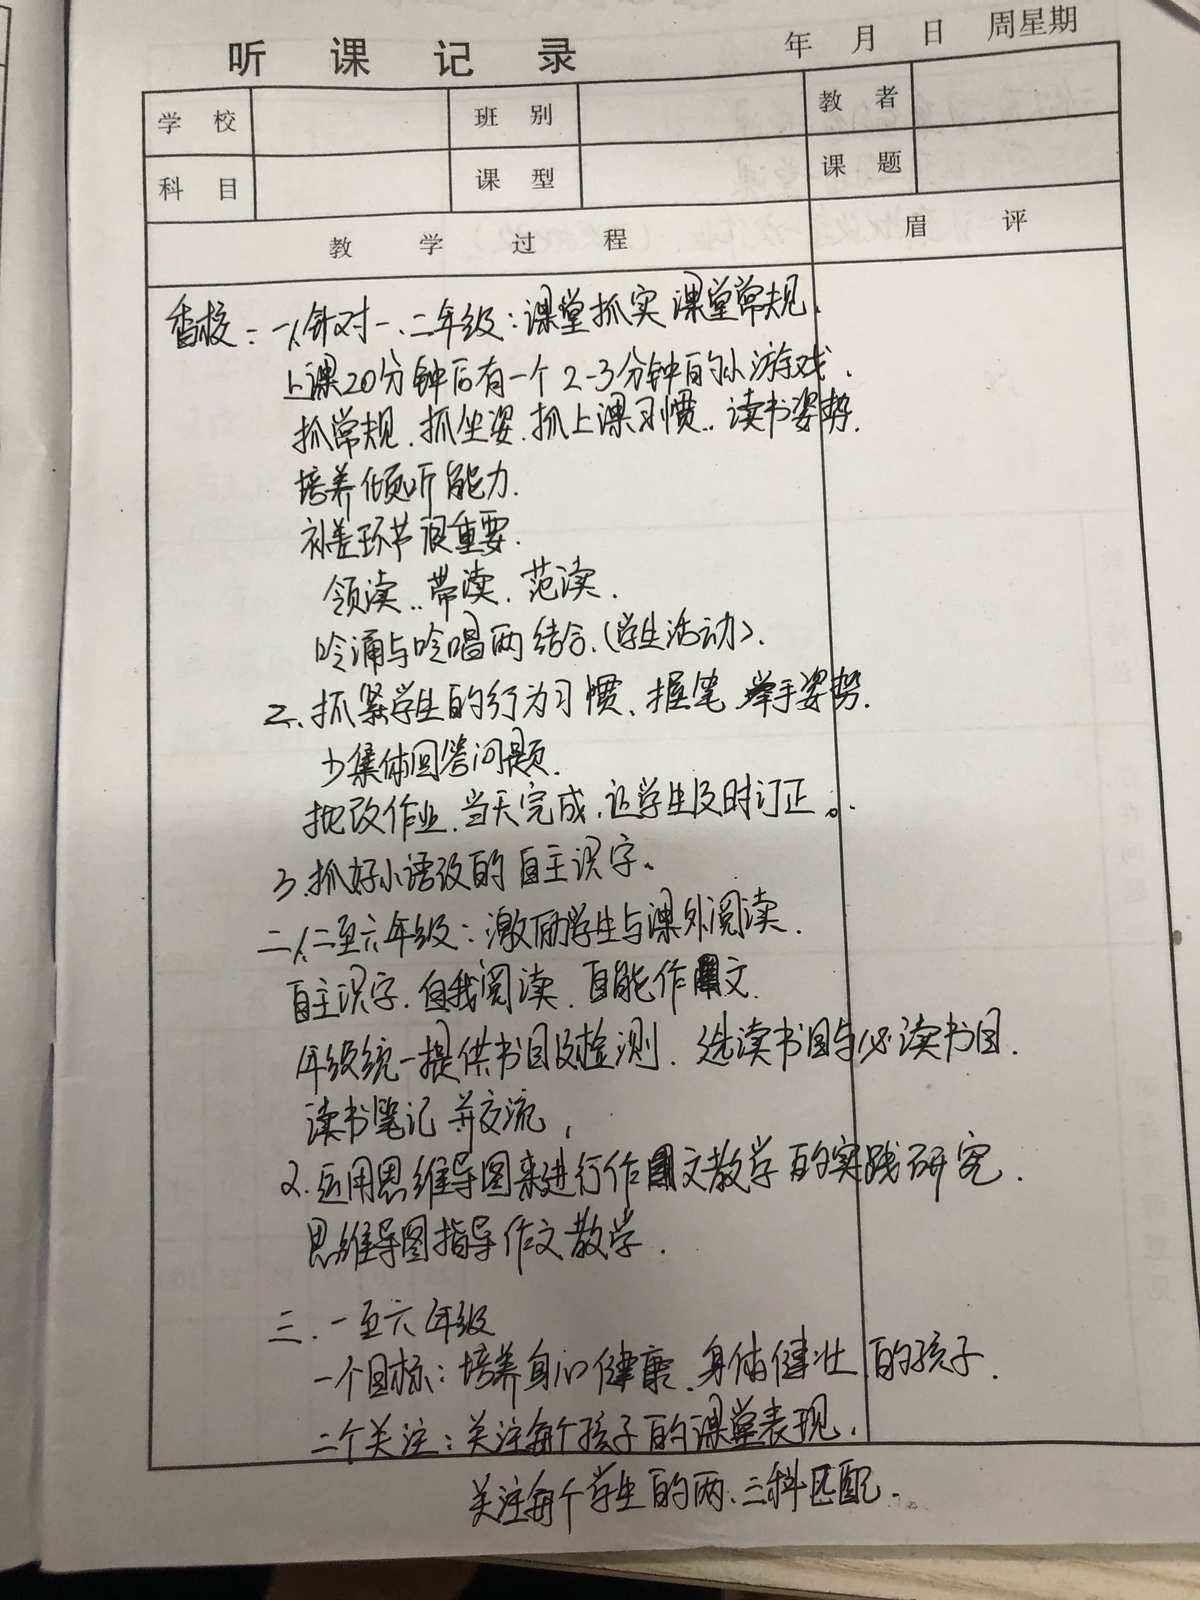 听课记录 年 月 日 周星期
学校 班别 教者
科目 课型 课题
教学过程 眉评
香校：一、1.针对一、二年级：课堂抓实课堂常规.
上课20分钟后有一个2-3分钟的小游戏.
抓常规.抓坐姿.抓上课习惯..读书姿势.
培养倾听能力.
补差环节很重要.
领读..带读.范读.
吟诵与吟唱两结合.(学生活动).
2.抓紧学生的行为习惯、握笔 举手姿势.
少集体回答问题.
批改作业.当天完成.让学生及时订正。.
3.抓好小语改的自主识字。
二、1.二至六年级：激励学生与课外阅读.
自主识字.自我阅读.自能作文.
年级统一提供书目及检测.选读书目与必读书目.
读书笔记 并交流,
2.运用思维导图来进行作文教学的实践研究.
思维导图指导作文教学.
三.一至六年级
一个目标：培养身心健康.身体健壮的孩子.
二个关注：关注每个孩子的课堂表现.
关注每个学生的两.三科匹配.